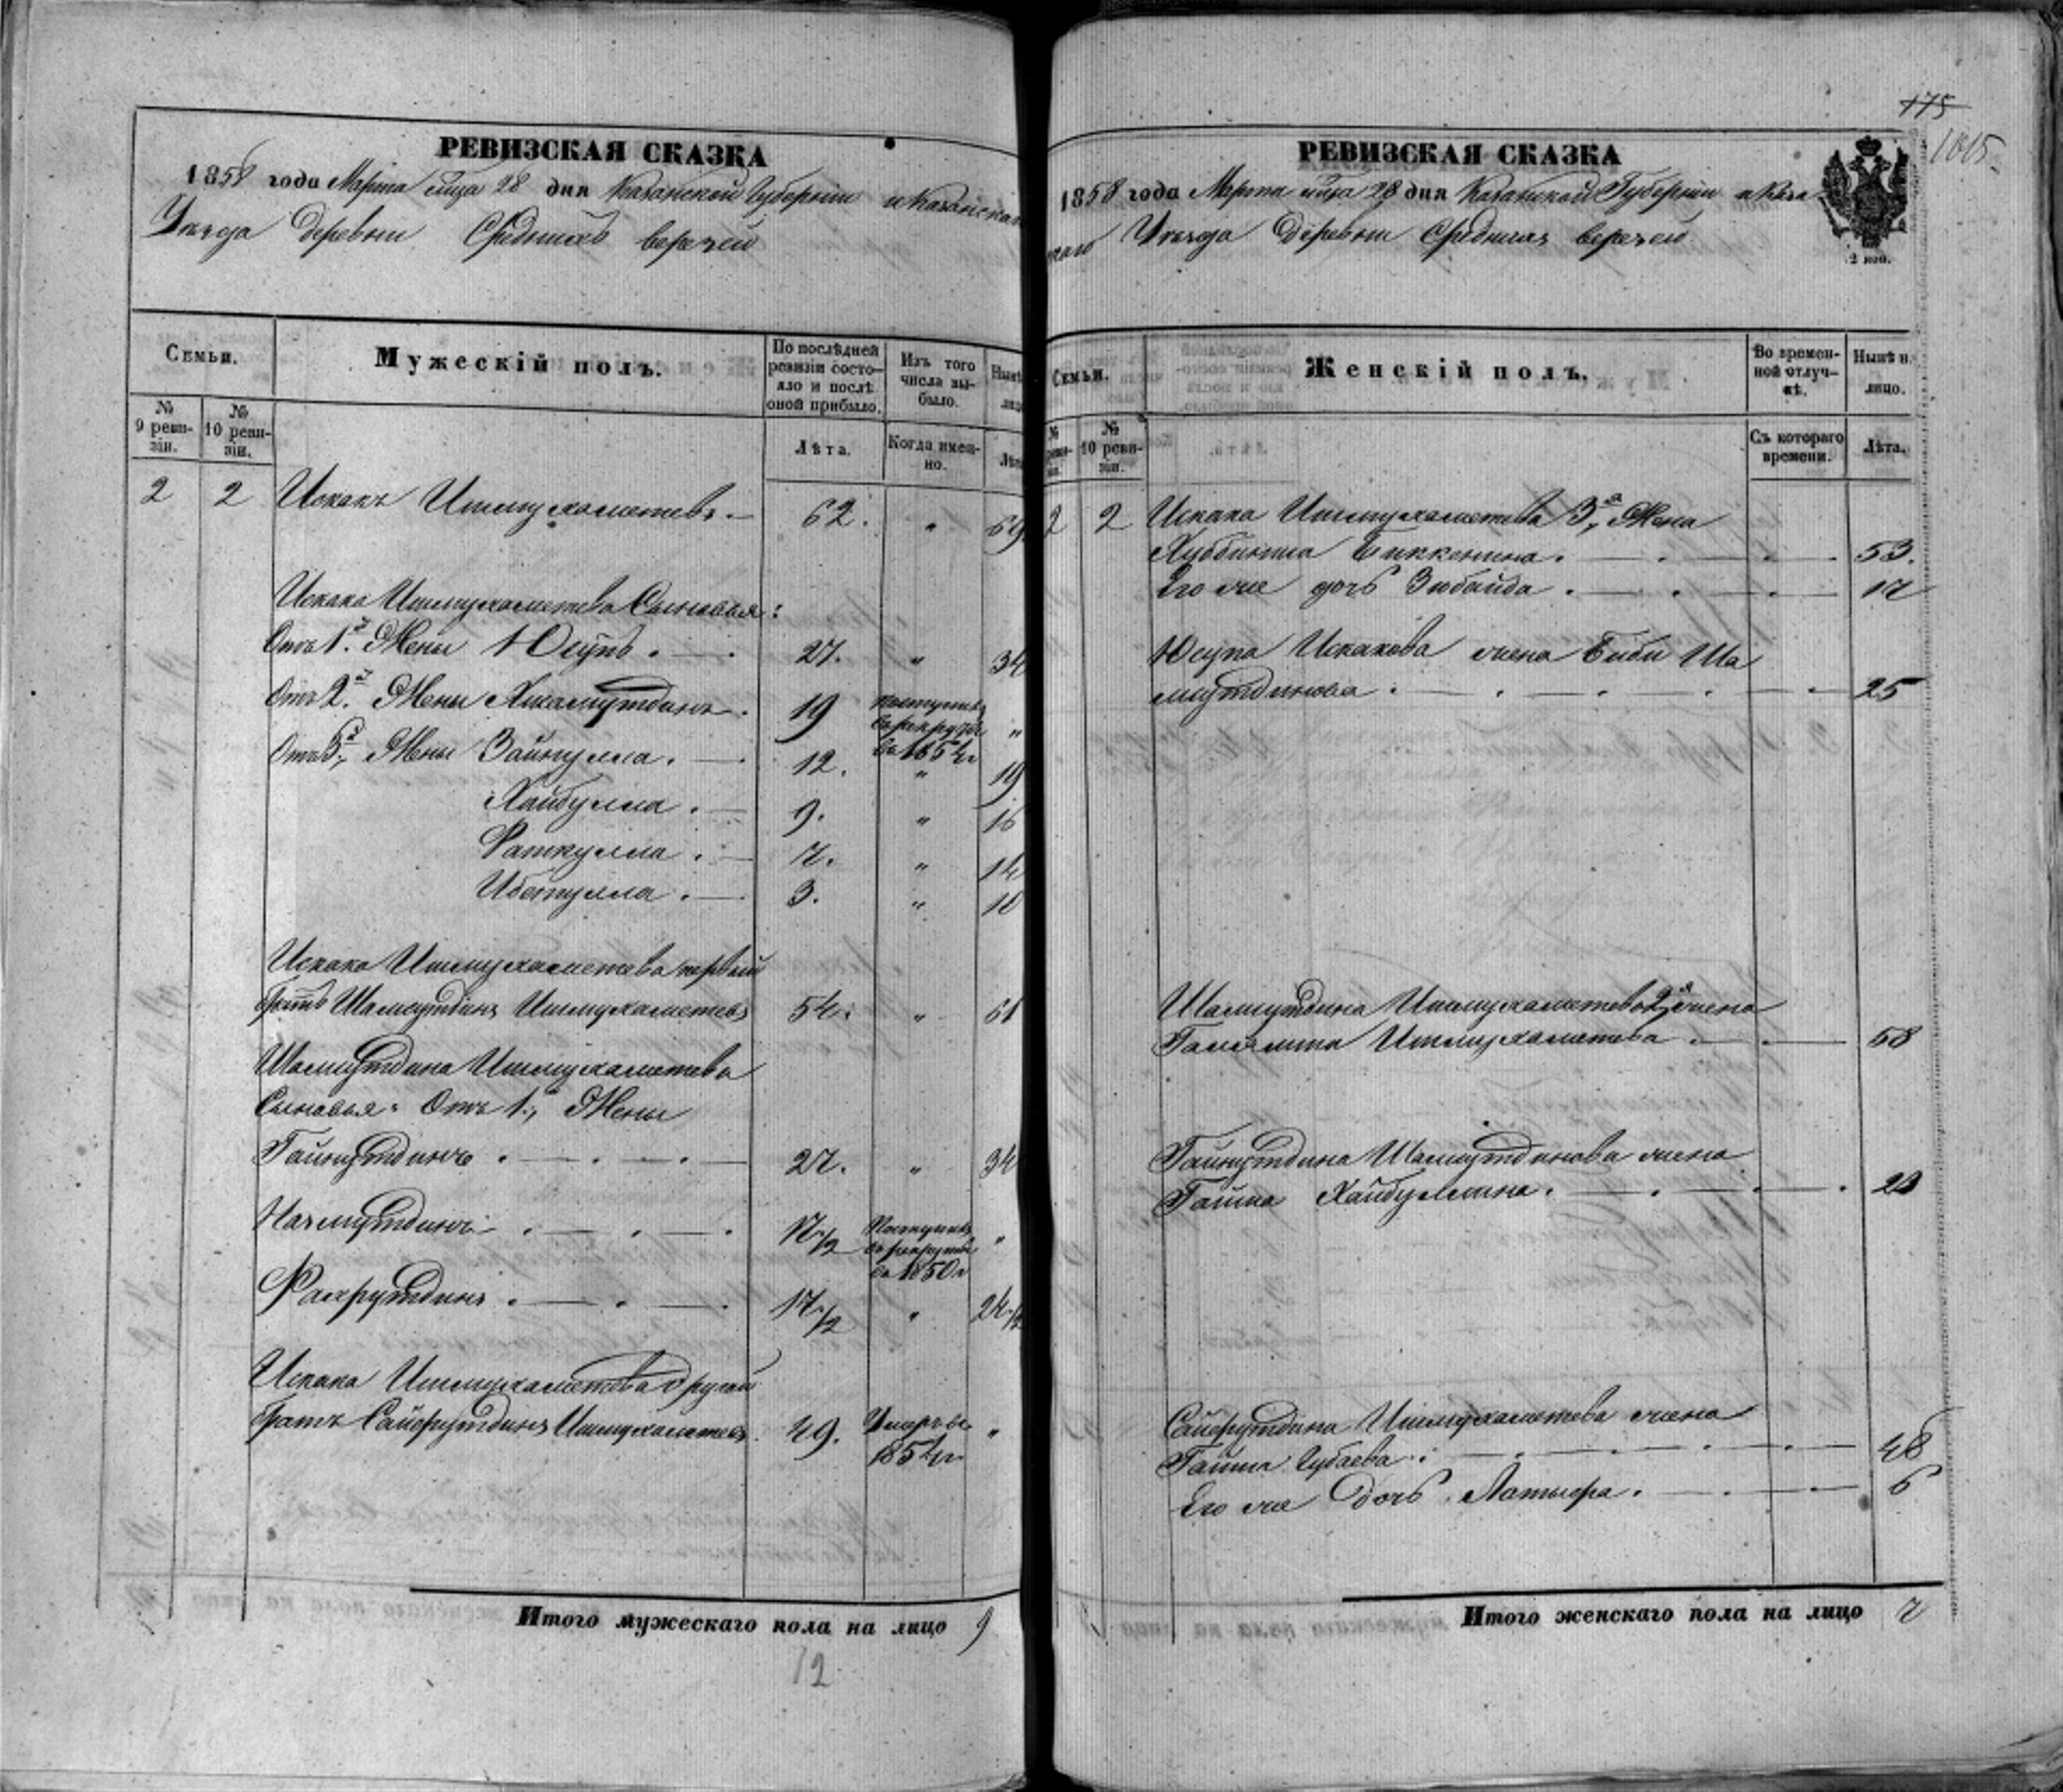 РЕВИЗСКАЯ СКАЗКА
1858 года Марта м̃ца 28 дня Казанской Губернiи и Казанскаго
Уезда деревни Среднихъ верезей
Семьи.
Мужескiй полъ.
По послѣдней ревизiи состояло и послѣ оной прибыло.
Изъ того числа выбыло.
№ 9 ревизiи.
№ 10 ревизiи.
Лѣта.
Когда именно.
2 2 Искакъ Ишмухаметевъ 62. " 69
Искака Ишмухаметева Сыновья:
Отъ 1й Жены Юсупъ 27. " 34
Отъ 2й Жены 19 поступилъ въ рекруты въ 1854 г "
Отъ 3й Жены Зайнулла 12. " 19
Хайбулла 9. " 16
Фаткулла 7. " 14
Ибетулла 3. " 10
Искака Ишмухаметева первый
братъ Шамсутдинъ Ишмухаметевъ 54. " 61
Шамсутдина Ишмухаметева
Сыновья: Отъ 1й Жены
Гайнутдинъ 27. " 34
Назмутдинъ 17 1/2 Поступилъ въ рекруты въ 1850 г "
Фахрутдинъ 17 1/2 " 24 1/2
Искака Ишмухаметева другой
братъ Сайфутдинъ Ишмухаметевъ 49. Умеръ въ 1854 г "
Итого мужескаго пола на лицо 9
12
175
1015
РЕВИЗСКАЯ СКАЗКА
1858 года Марта м̃ца 28 дня Казанской Губернiи и Каза
скаго Уезда деревни Среднихъ верезей
2 коп.
Семьи.
Женскiй полъ.
Во временной отлучкѣ.
Нынѣ н. лицо.
№ 10 ревизiи.
Съ котораго времени.
Лѣта.
2 2 Искака Ишмухаметева 3я Жена
Хуббиниса Биккенина 53.
Его же дочь Зюбайда 17
Юсупа Искакова жена Биби Ша
мсутдинова 25
Шамсутдина Ишмухаметева 2я жена
Ишмухаметева 58
Гайнутдина Шамсутдинова жена
Гайша Хайбуллина
Сайфутдина Ишмухаметева жена
Гайша Губаева 48
Его же дочь Латыфа 6
Итого женскаго пола на лицо 7